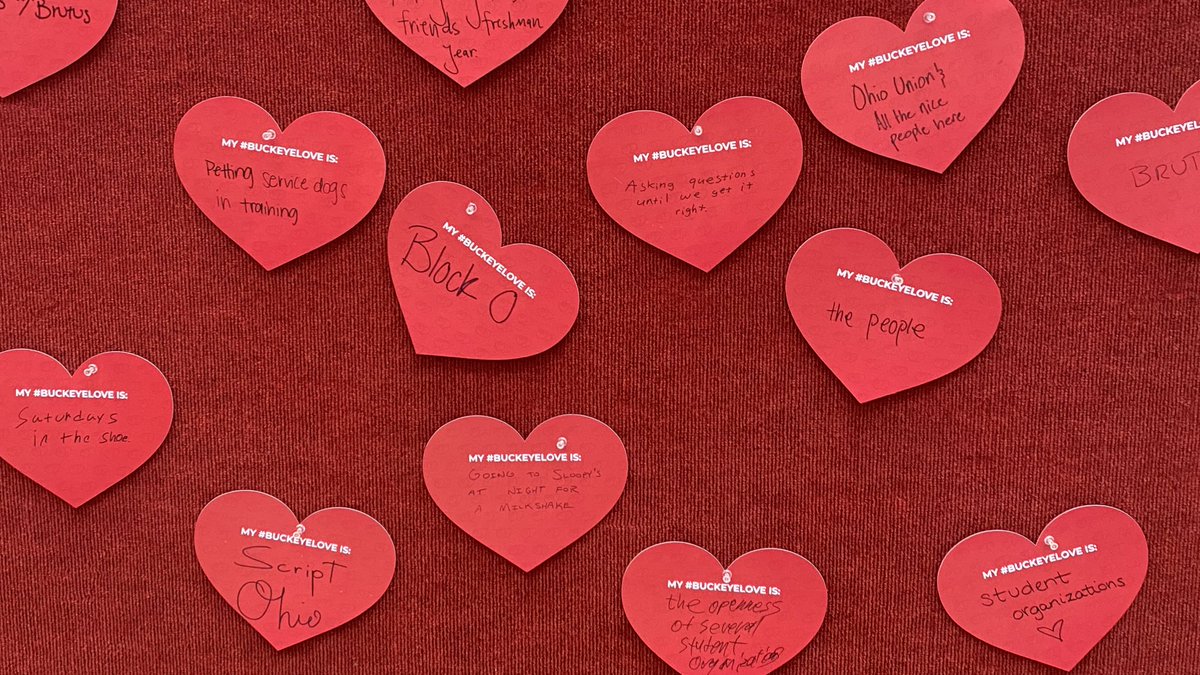 Brutus
friends freshman
year.
MY #BUCKEYELOVE IS:
Ohio Union &
All the nice
people here
MY #BUCKEYELOVE IS:
Petting service dogs
in training
MY #BUCKEYELOVE IS:
Asking questions
until we get it
right.
MY #BUCKEYELOVE IS:
BRUT
MY #BUCKEYELOVE IS:
Block O
MY #BUCKEYELOVE IS:
the people
MY #BUCKEYELOVE IS:
Saturdays
in the shoe.
MY #BUCKEYELOVE IS:
GOING TO SLOOPY'S
AT NIGHT FOR
A MILKSHAKE
MY #BUCKEYELOVE IS:
Script
Ohio
MY #BUCKEYELOVE IS:
the openness
of several
student
organization
MY #BUCKEYELOVE IS:
student
organizations